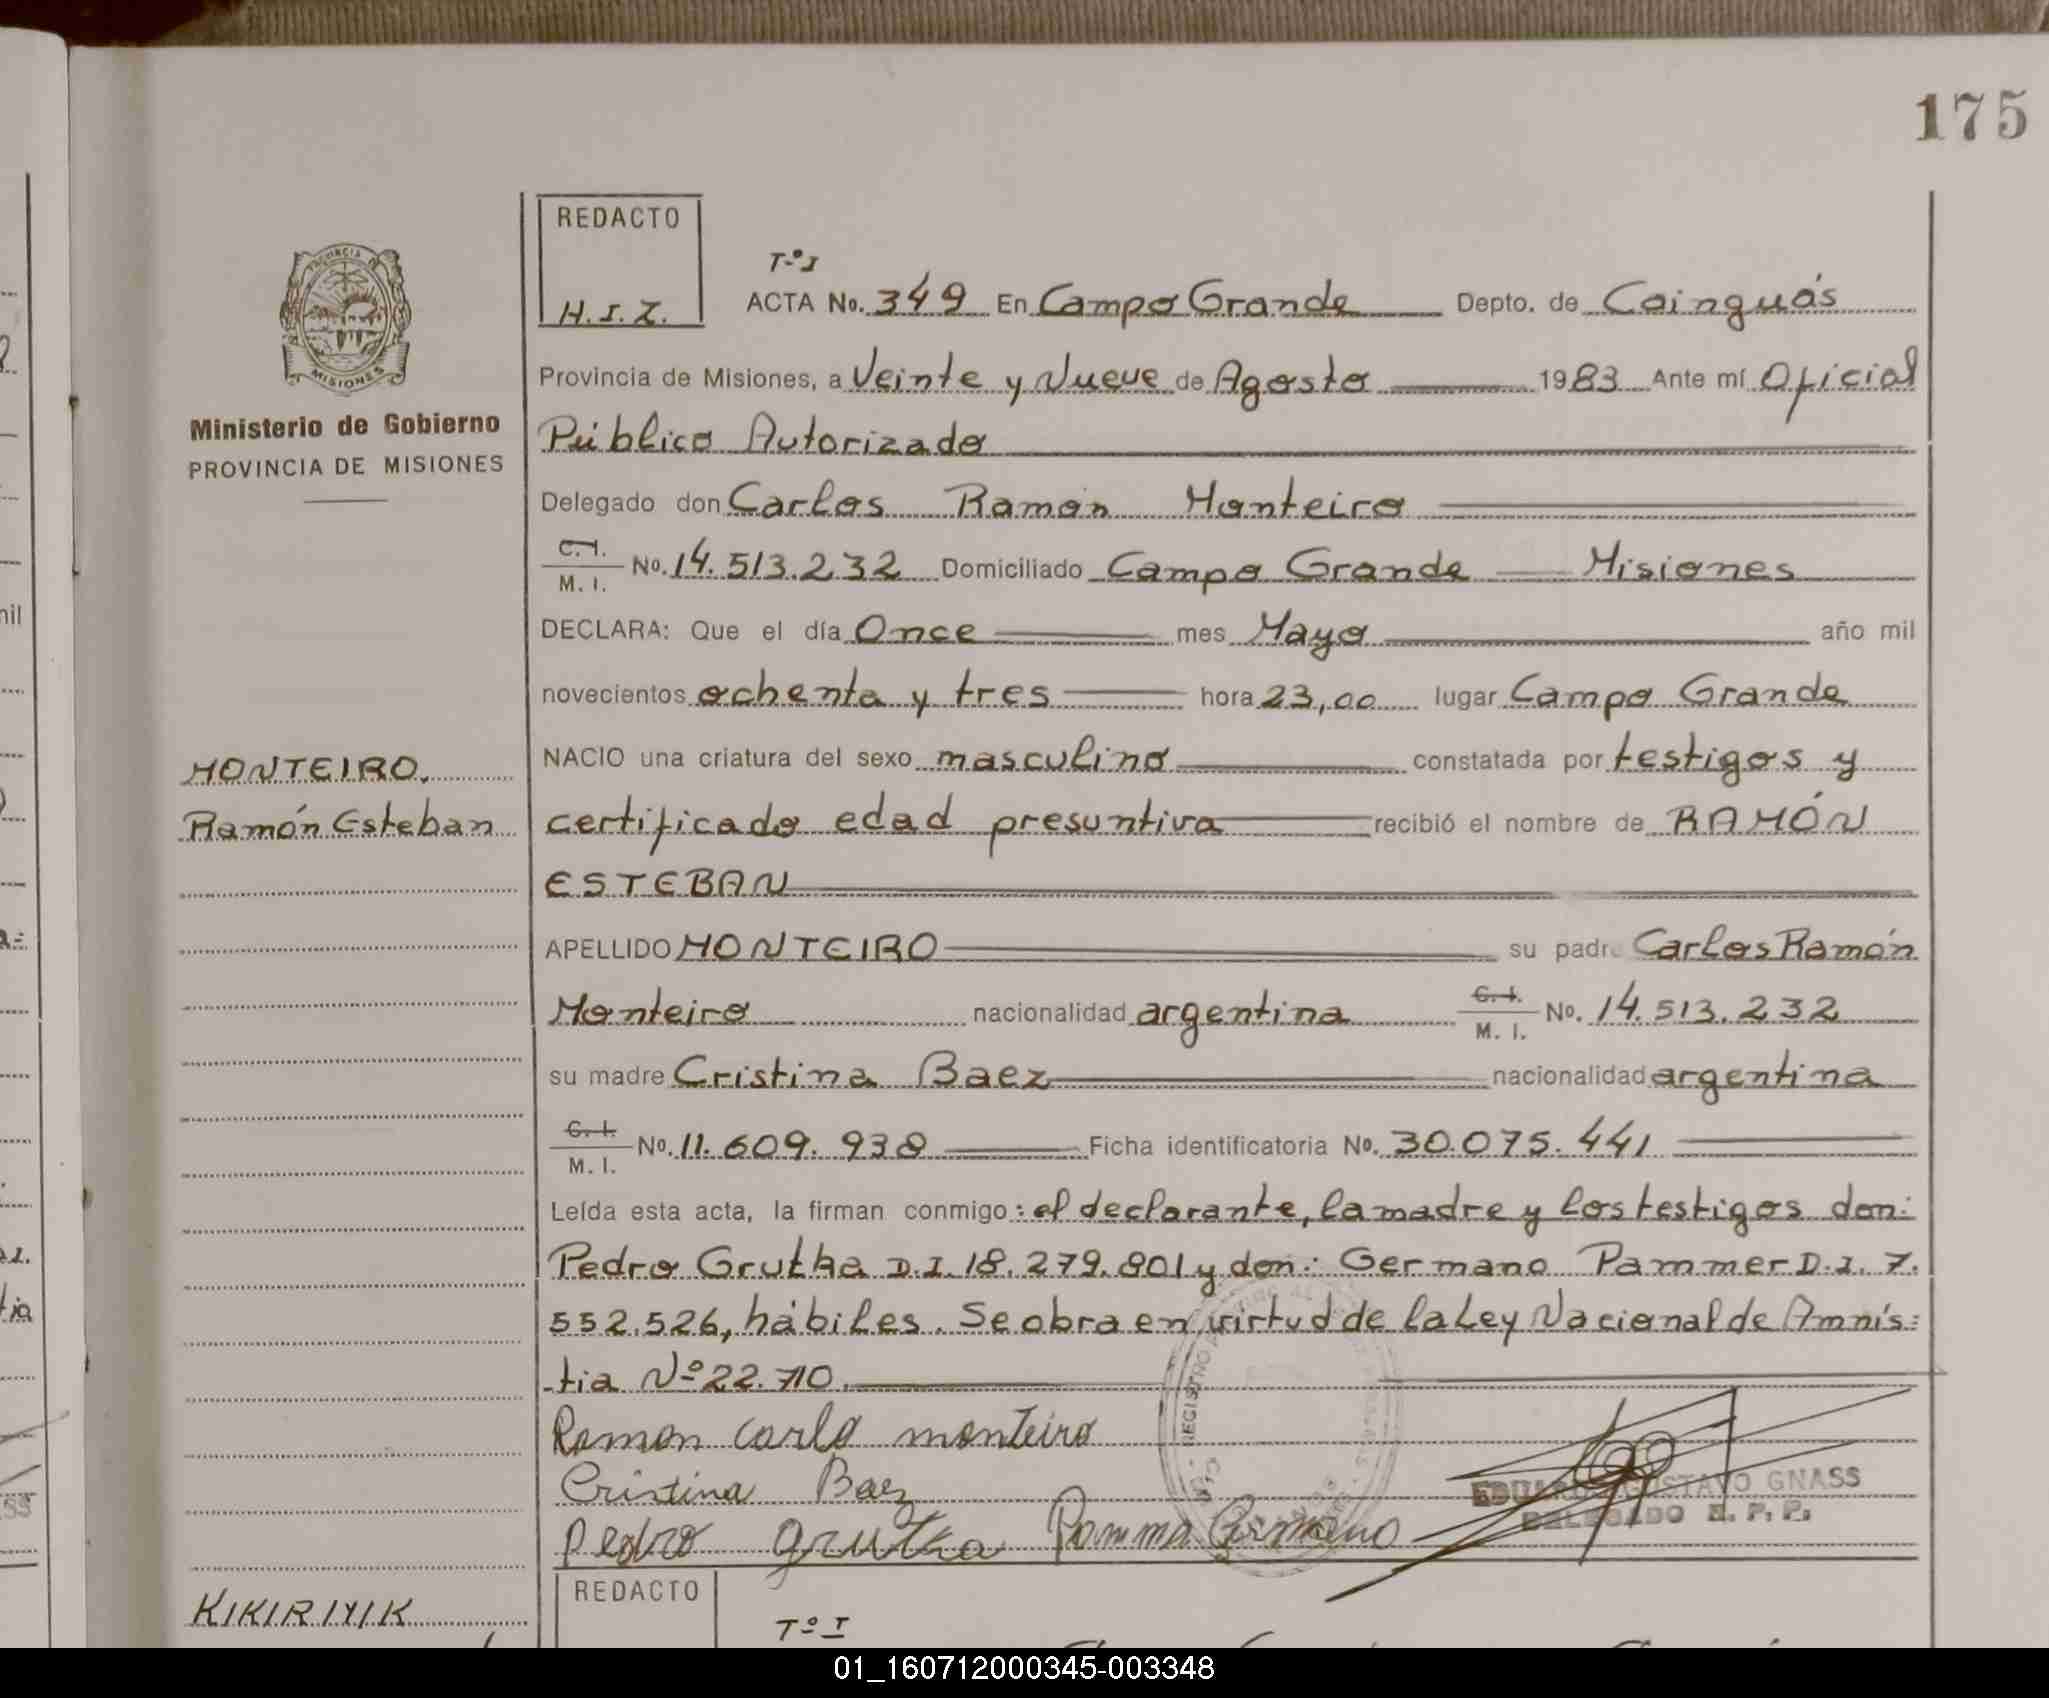 175
REDACTO
H.I.Z.
Tº I
ACTA No. 349 En Campo Grande Depto. de Cainguás
Provincia de Misiones, a Veinte y Nueve de Agosto 1983 Ante mí Oficial
Público Autorizado
Delegado don Carlos Ramón Monteiro
C. I. / M. I. No. 14.513.232 Domiciliado Campo Grande — Misiones
DECLARA: Que el día Once mes Mayo año mil
novecientos ochenta y tres hora 23,00 lugar Campo Grande
NACIO una criatura del sexo masculino constatada por testigos y
certificado edad presuntiva recibió el nombre de RAMÓN
ESTEBAN
APELLIDO MONTEIRO su padre Carlos Ramón
Monteiro nacionalidad argentina C. I. / M. I. No. 14.513.232
su madre Cristina Baez nacionalidad argentina
C. I. / M. I. No. 11.609.938 Ficha identificatoria No. 30.075.441
Leída esta acta, la firman conmigo: el declarante, la madre y los testigos don:
Pedro Grutka D.I. 18.279.801 y don: Germano Pammer D.I. 7.
552.526, hábiles. Se obra en virtud de la Ley Nacional de Amnís=
-tia Nº 22.710.
Ramon carlo monteiro
Cristina Baez
Pedro grutka Pamma Germano
EDUARDO GUSTAVO GNASS
DELEGADO R. P. P.
PROVINCIA DE
MISIONES
Ministerio de Gobierno
PROVINCIA DE MISIONES
MONTEIRO,
Ramón Esteban
KIKIRIYIK
REDACTO
Tº I
01_160712000345-003348